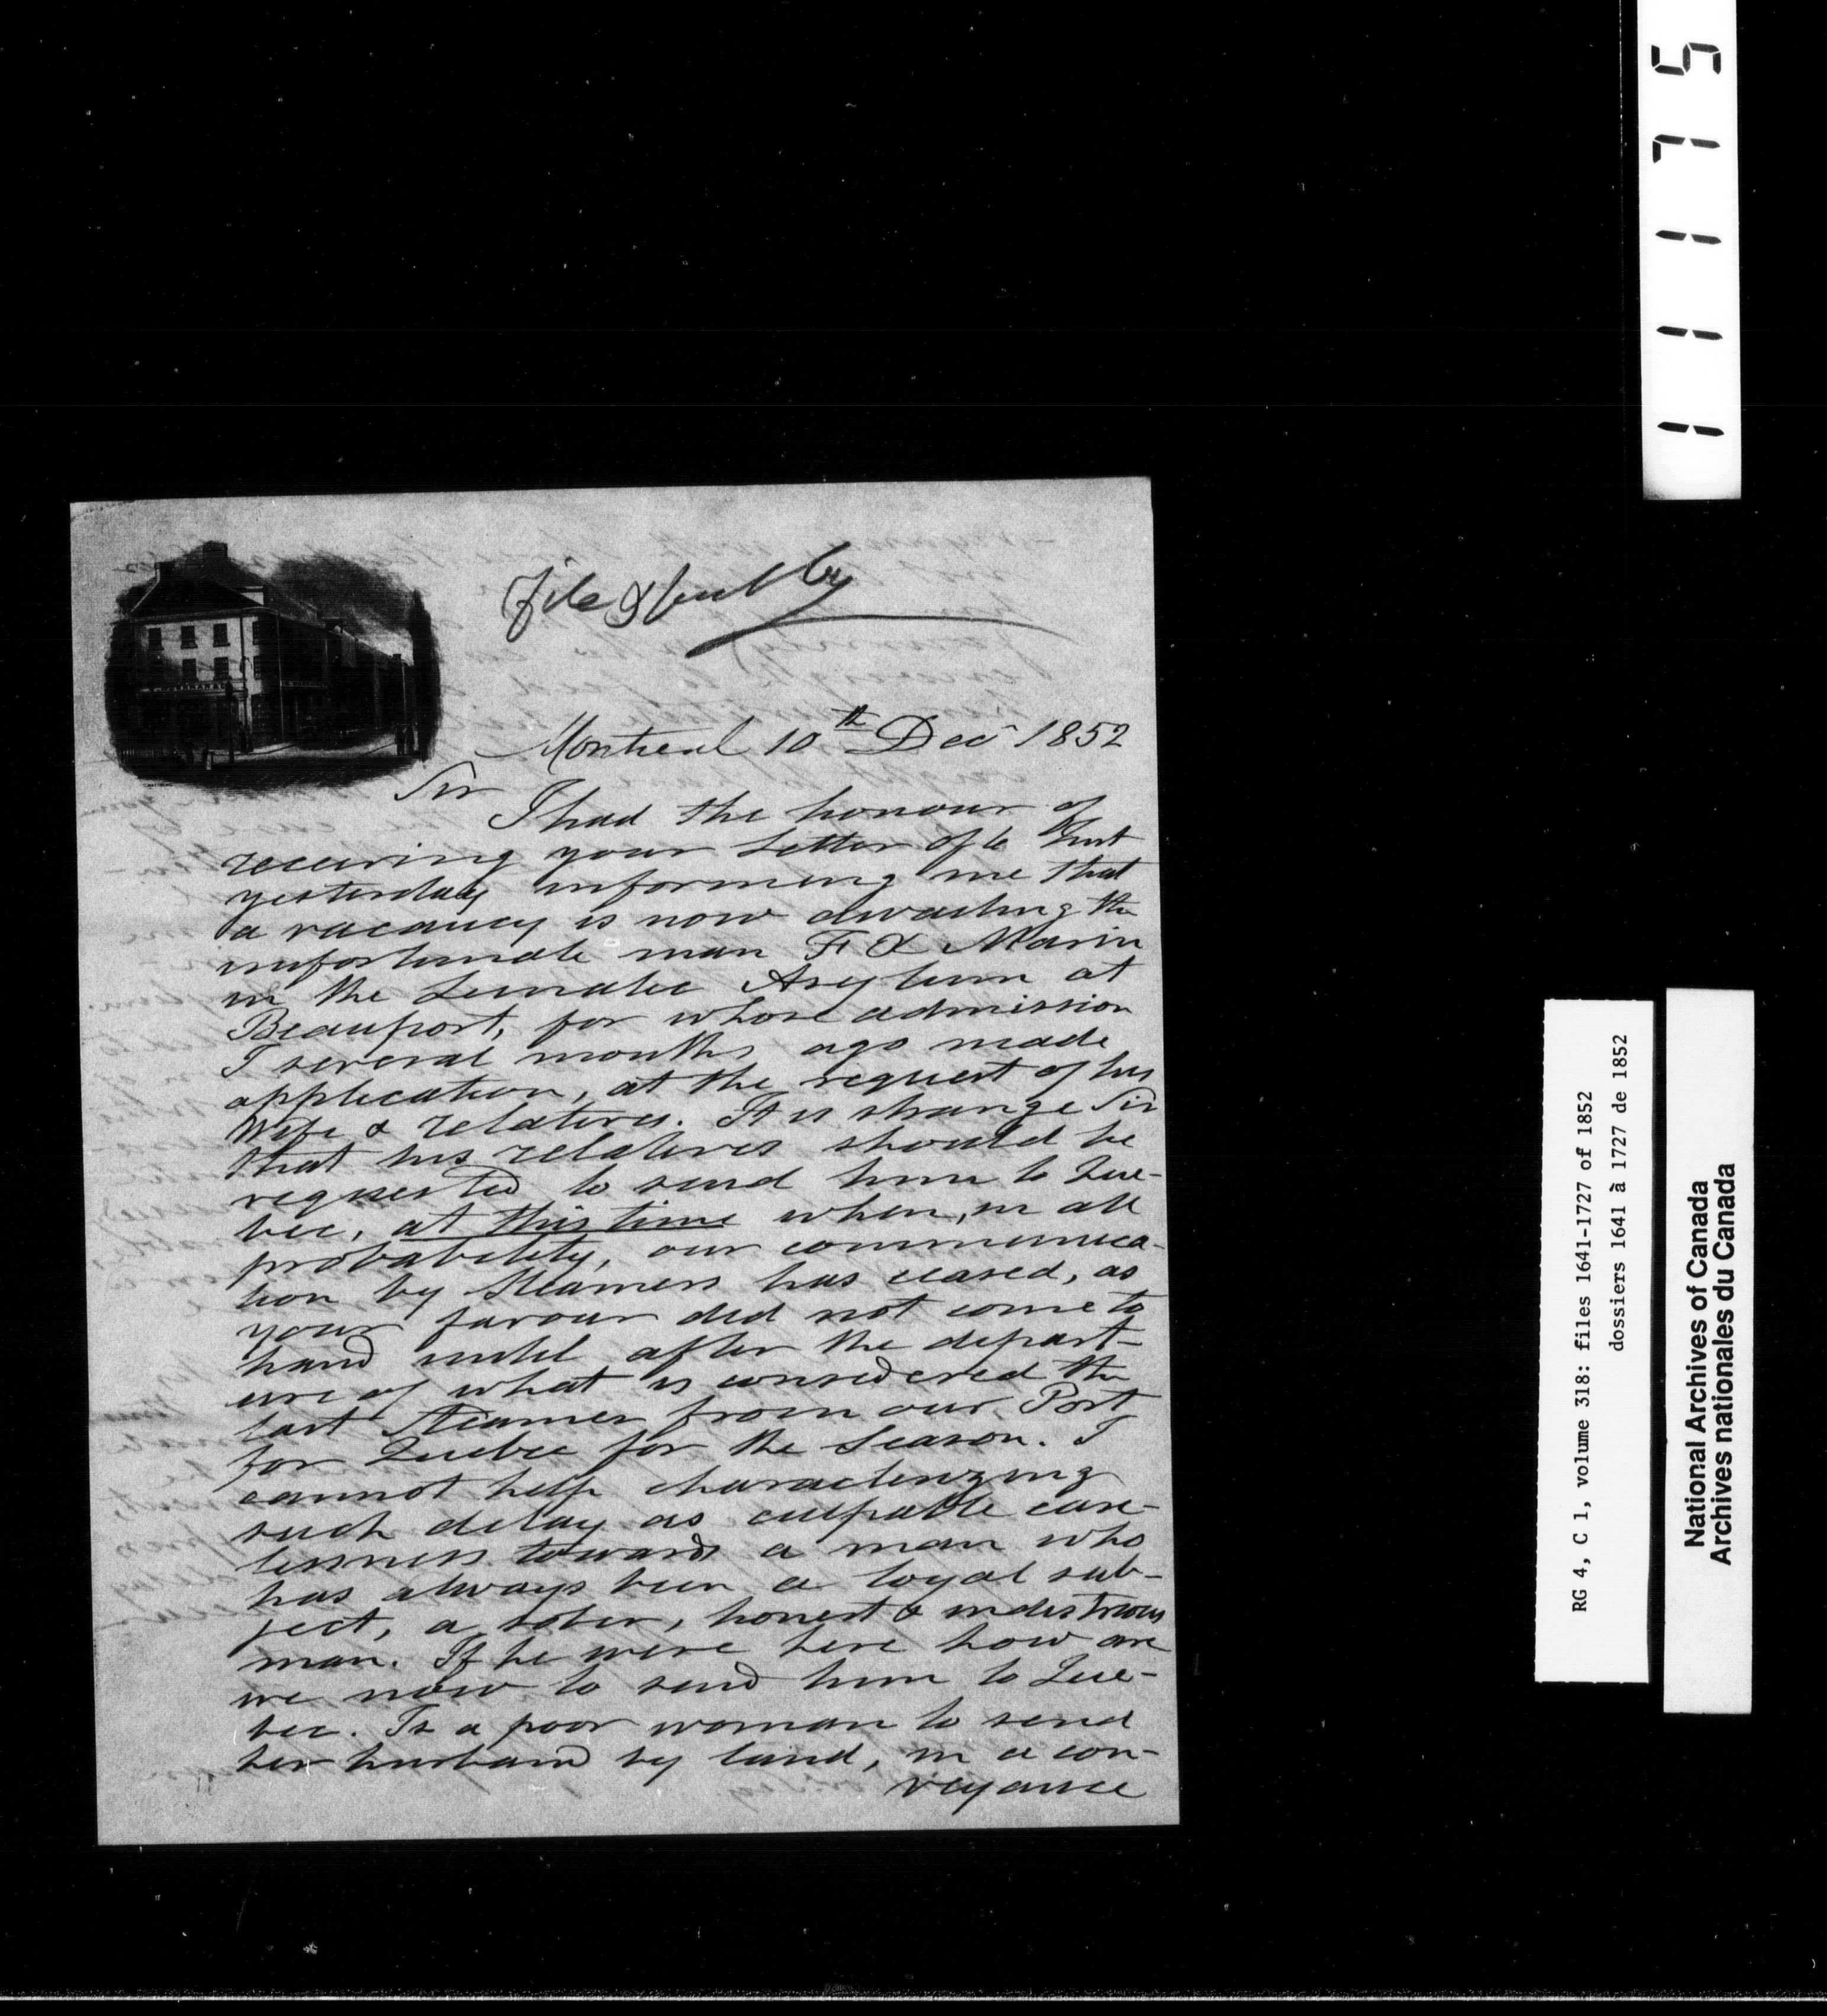 Montreal 10th Decr 1852
Sir
I had the honour of
receiving your Letter of 6 Inst
yesterday informing me that
a vacancy is now awaiting the
unfortunate man F X Marin
in the Lunatic Asylum at
Beauport, for whose admission
I several months ago made
application, at the request of his
Wife & relatives. It is strange Sir
that his relatives should be
requested to send him to Que-
bec, at this time when, in all
probability, our communica-
tion by Steamers has ceased, as
your favour did not come to
hand until after the depart-
ure of what is considered the
last Steamer from our Port
for Quebec for the Season. I
cannot help characterizing
such delay as culpable care-
lessness towards a man who
has always been a loyal sub-
ject, a sober, honest & industrious
man. If he were here how are
we now to send him to Que-
bec. Is a poor woman to send
her husband by land, in a con-
veyance
11175
RG 4, C 1, volume 318: files 1641-1727 of 1852
dossiers 1641 à 1727 de 1852
National Archives of Canada
Archives nationales du Canada